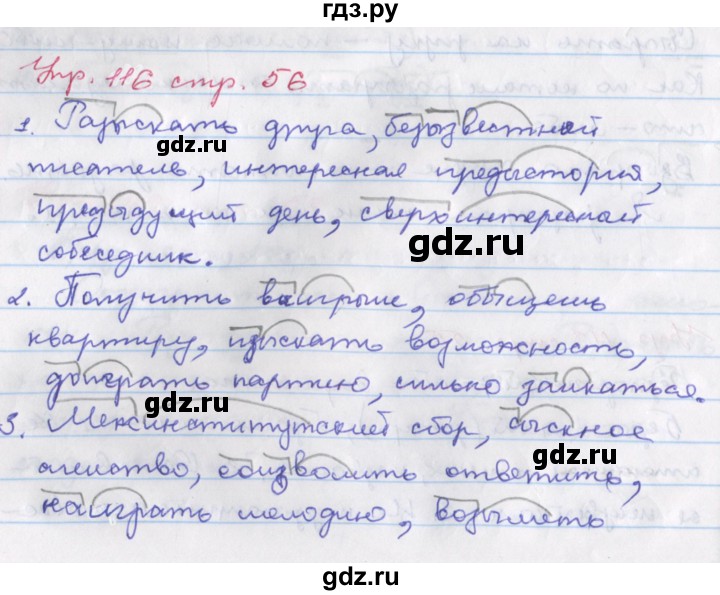 гдз.ру
Упр. 116 стр. 56
1. Разыскать друга, безызвестный
писатель, интересная предыстория,
gdz.ru
предыдущий день, сверхинтересный
gdz.ru
собеседник.
2. Получить выигрыш, обыщешь
gdz.ru
квартиру, изыскать возможность,
доиграть партию, сильно заикаться.
gdz.ru
3. Межинститутский сбор, сыскное
gdz.ru
агентство, соизволить ответить,
наиграть мелодию, возыметь
gdz.ru
gdz.ru